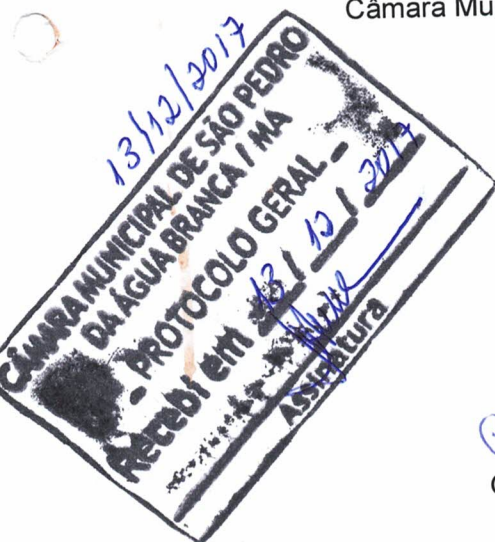 Câmara Mu
13/12/2017
CÂMARA MUNICIPAL DE SÃO PEDRO
DA ÁGUA BRANCA / MA
- PROTOCOLO GERAL -
Recebi em 13 / 12 / 2017
Assinatura